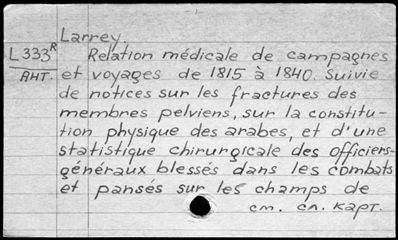 Larrey.
L 333ᴿ Relation médicale de campagnes
АНТ. et voyages de 1815 à 1840. Suivie
de notices sur les fractures des
membres pelviens, sur la constitu-
tion physique des arabes, et d'une
statistique chirurgicale des officiers-
généraux blessés dans les combats
et pansés sur les champs de
см. сл. карт.